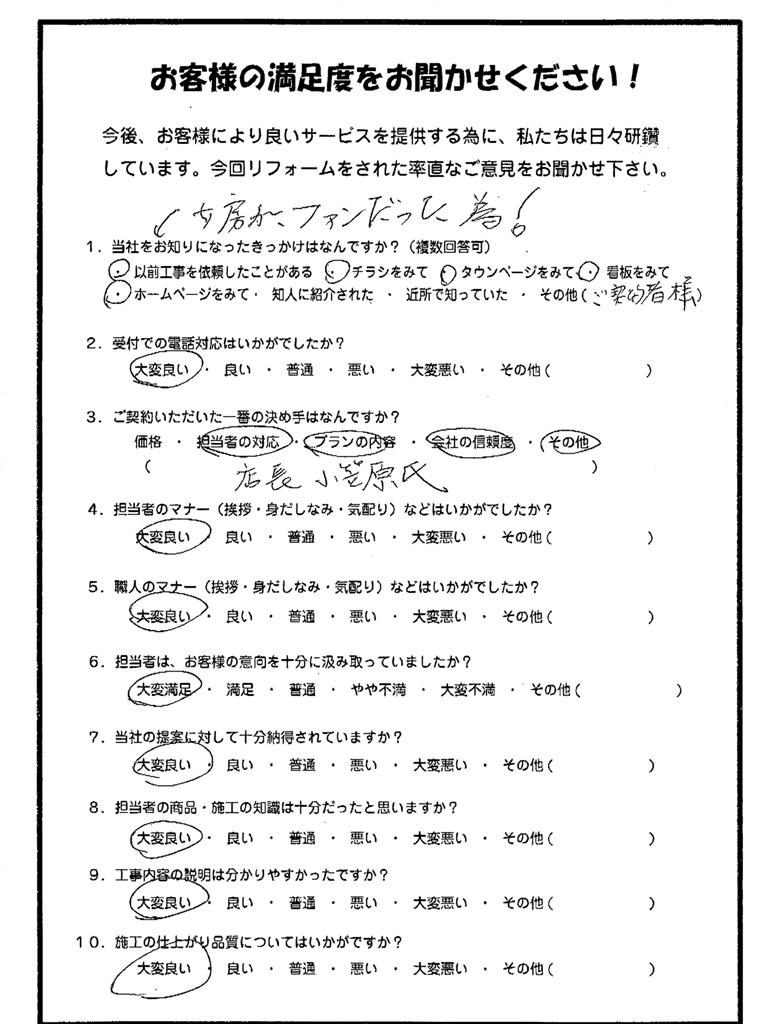 お客様の満足度をお聞かせください！
今後、お客様により良いサービスを提供する為に、私たちは日々研鑽
しています。今回リフォームをされた率直なご意見をお聞かせ下さい。
女房が、ファンだった為！
１．当社をお知りになったきっかけはなんですか？（複数回答可）
・以前工事を依頼したことがある ・チラシをみて ・タウンページをみて ・看板をみて
・ホームページをみて・ 知人に紹介された ・ 近所で知っていた ・ その他（ご契約者様）
２．受付での電話対応はいかがでしたか？
大変良い ・ 良い ・ 普通 ・ 悪い ・ 大変悪い ・ その他（ ）
３．ご契約いただいた一番の決め手はなんですか？
価格 ・ 担当者の対応 ・ プランの内容 ・ 会社の信頼度 ・ その他
（ 店長 小笠原氏 ）
４．担当者のマナー（挨拶・身だしなみ・気配り）などはいかがでしたか？
大変良い ・ 良い ・ 普通 ・ 悪い ・ 大変悪い ・ その他（ ）
５．職人のマナー（挨拶・身だしなみ・気配り）などはいかがでしたか？
大変良い ・ 良い ・ 普通 ・ 悪い ・ 大変悪い ・ その他（ ）
６．担当者は、お客様の意向を十分に汲み取っていましたか？
大変満足 ・ 満足 ・ 普通 ・ やや不満 ・ 大変不満 ・ その他（ ）
７．当社の提案に対して十分納得されていますか？
大変良い ・ 良い ・ 普通 ・ 悪い ・ 大変悪い ・ その他（ ）
８．担当者の商品・施工の知識は十分だったと思いますか？
大変良い ・ 良い ・ 普通 ・ 悪い ・ 大変悪い ・ その他（ ）
９．工事内容の説明は分かりやすかったですか？
大変良い ・ 良い ・ 普通 ・ 悪い ・ 大変悪い ・ その他（ ）
１０．施工の仕上がり品質についてはいかがですか？
大変良い ・ 良い ・ 普通 ・ 悪い ・ 大変悪い ・ その他（ ）